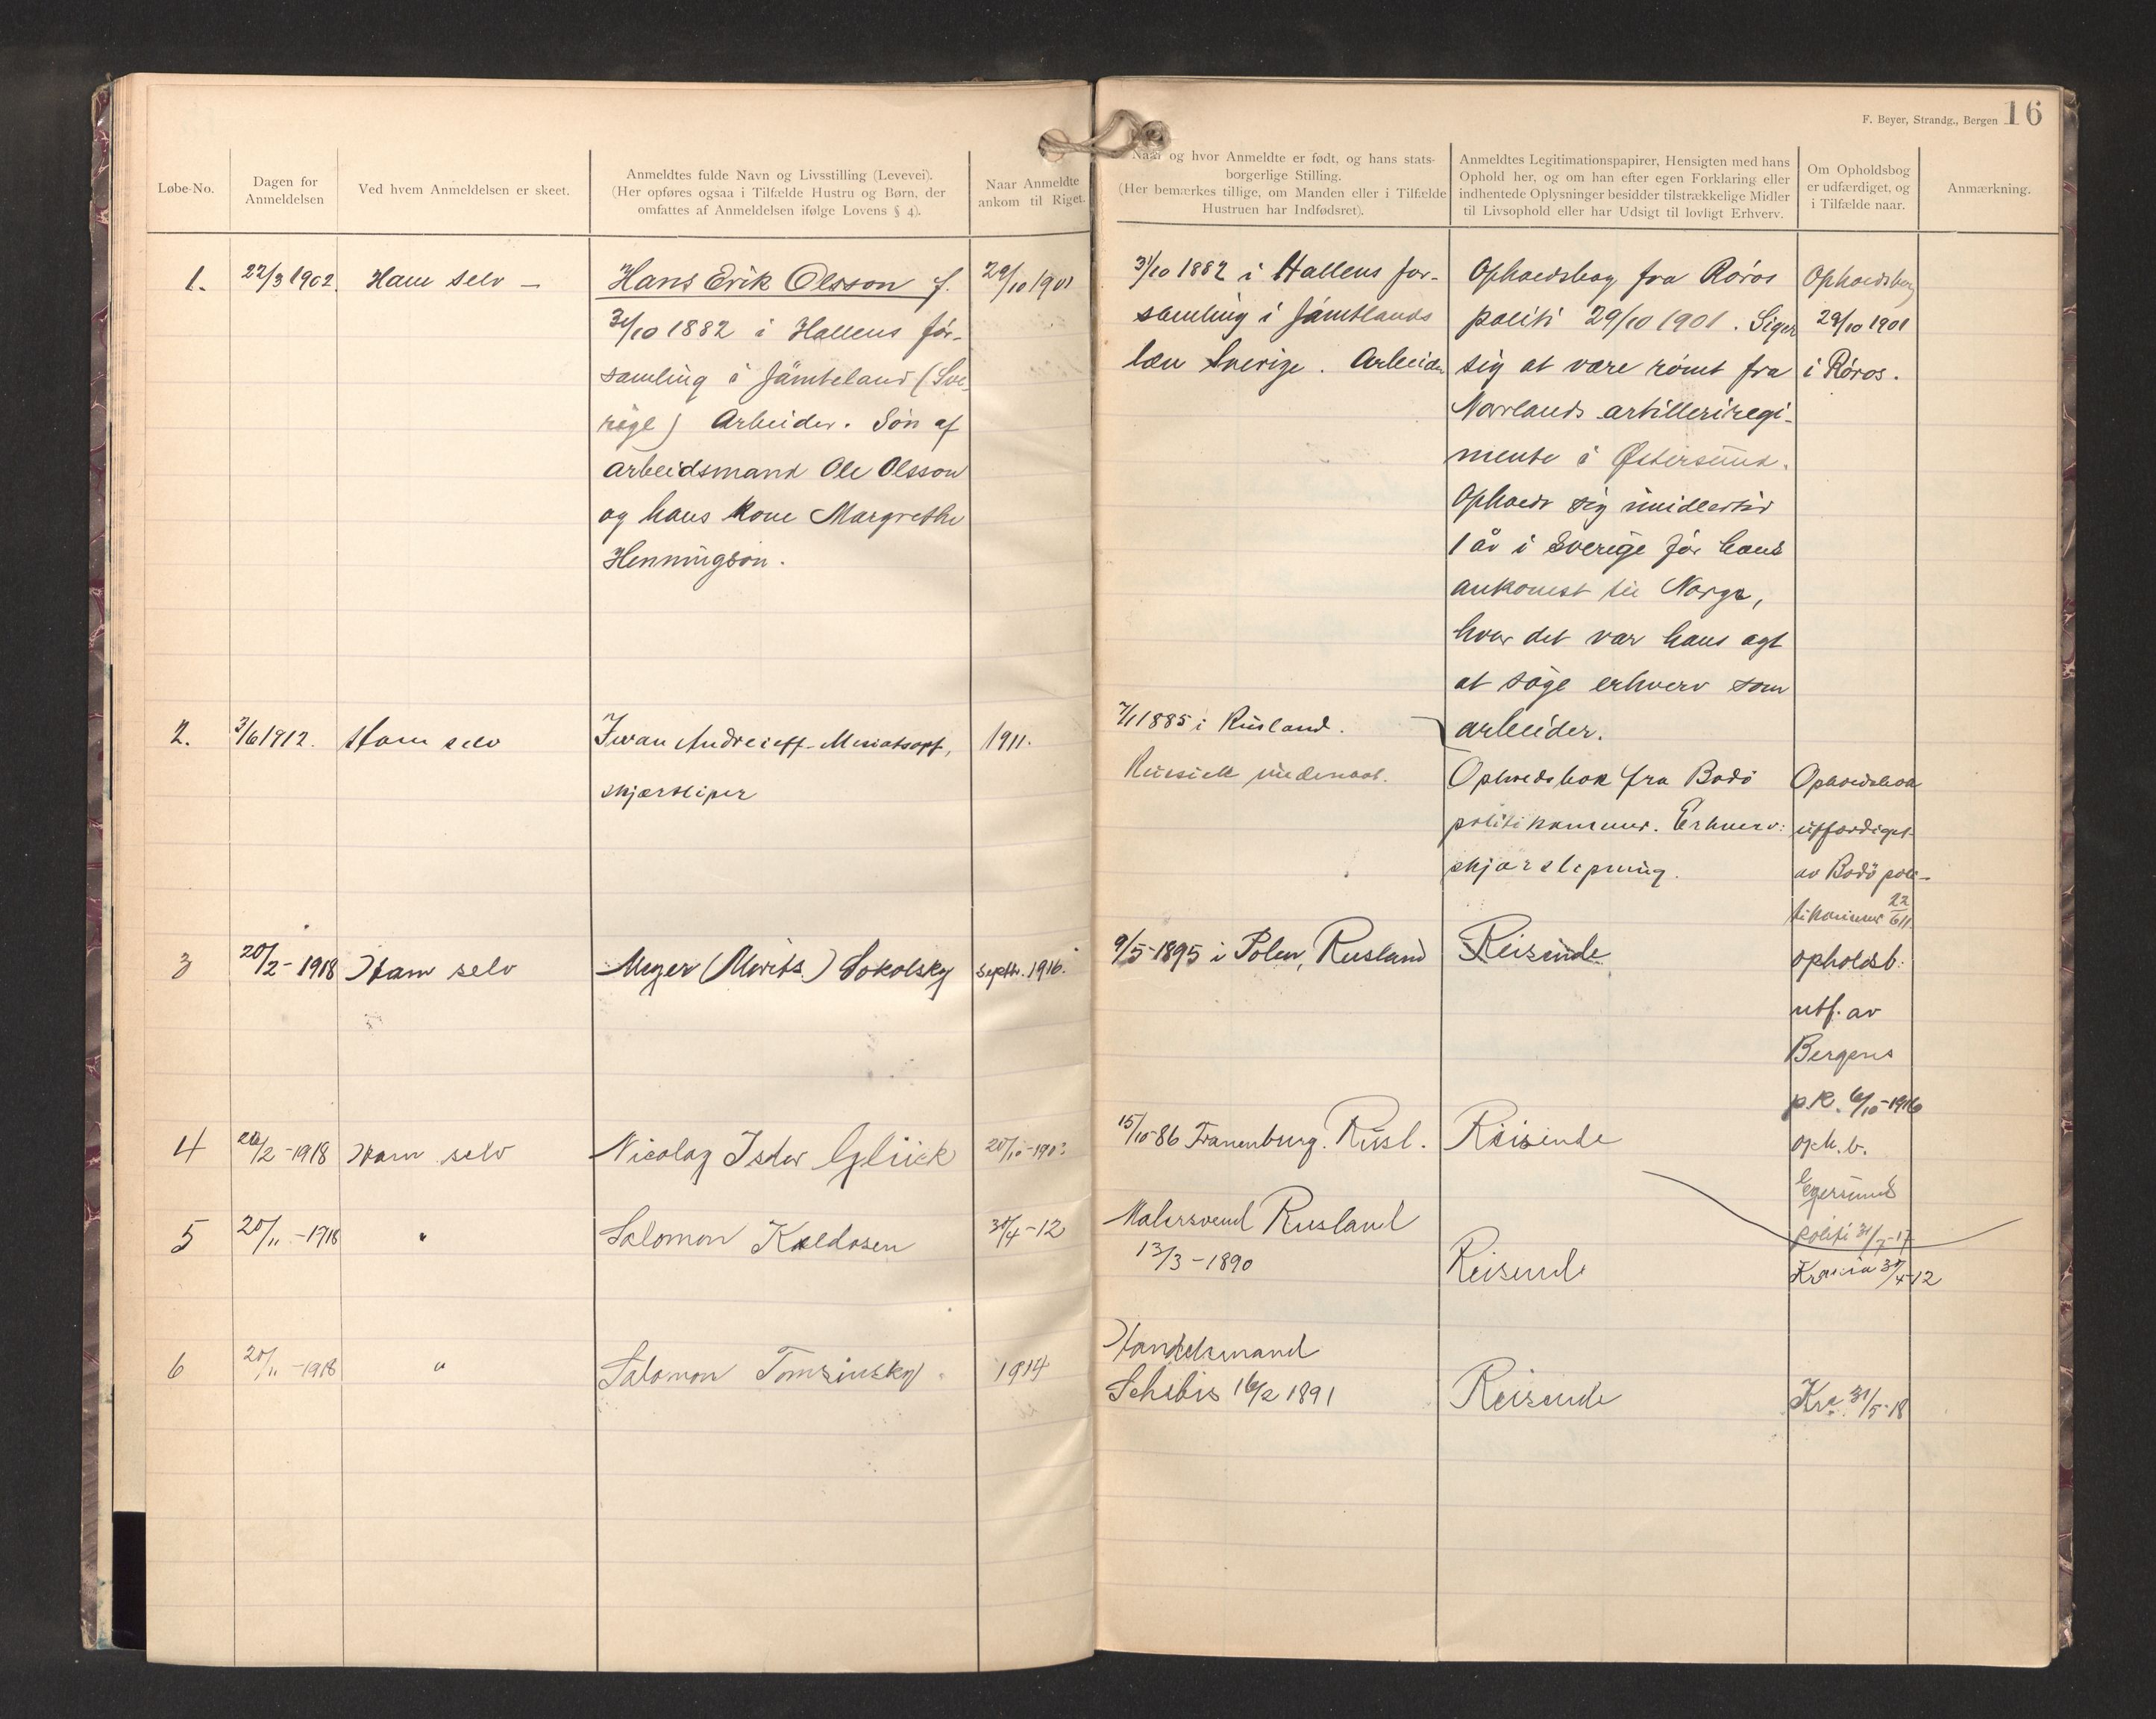 F. Beyer, Strandg., Bergen 16
Løbe-No.
Dagen for
Anmeldelsen
Ved hvem Anmeldelsen er skeet.
Anmeldtes fulde Navn og Livsstilling (Levevei).
(Her opføres ogsaa i Tilfælde Hustru og Børn, der
omfattes af Anmeldelsen ifølge Lovens § 4).
Naar Anmeldte
ankom til Riget.
Naar og hvor Anmeldte er født, og hans stats-
borgerlige Stilling.
(Her bemærkes tillige, om Manden eller i Tilfælde
Hustruen har Indfødsret).
Anmeldtes Legitimationspapirer, Hensigten med hans
Ophold her, og om han efter egen Forklaring eller
indhentede Oplysninger besidder tilstrækkelige Midler
til Livsophold eller har Udsigt til lovligt Erhverv.
Om Opholdsbog
er udfærdiget, og
i Tilfælde naar.
Anmærkning.
1.
22/3 1902.
Ham selv —
Hans Erik Olsson f.
31/10 1882 i Hallens for-
samling i Jämteland (Sve-
rige) Arbeider. Søn af
arbeidsmand Ole Olsson
og hans kone Margrethe
Henningson.
29/10 1901
31/10 1882 i Hallens for-
samling i Jämtlands
læn Sverige. Arbeider
Opholdsbog fra Røros
politi 29/10 1901. Siger
sig at være rømt fra
Norrlands artilleriregi-
mente i Østersund.
Opholdt sig imidlertid
1 år i Sverige før hans
ankomst til Norge,
hvor det var hans agt
at søge erhverv som
arbeider.
Opholdsbog
29/10 1901
i Røros.
2.
3/6 1912.
Ham selv
Iwan Andreieff
skjærsliper
1911.
7/1 1885 i Rusland.
Russisk undersaat.
Opholdsbok fra Bodø
politikammer. Erhverv:
skjærslipning.
Opholdsbok
utfærdiget
av Bodø poli-
tikammer 22/6 11
3
20/2 - 1918
Ham selv
Meyer (Morits) Sokolsky
Septbr. 1916.
9/5 - 1895 i Polen, Rusland
Reisende
opholdsb.
utf. av
Bergens
p.k. 6/10 - 1916
4
20/2 - 1918
Ham selv
Nicolay Isder Glück
15/10 - 86 Frauenburg. Rusl.
Reisende
oph. b.
Egersund
politi 31/7 - 17
5
20/11 - 1918
"
Salomon Koldosen
30/4 - 12
Malersvend Rusland
13/3 - 1890
Reisende
Kr.ania 30/4 12
6
20/11 - 1918
"
Salomon Tomsinsky.
1914
Handelsmand
16/2 1891
Reisende
Kr.a 31/5 - 18